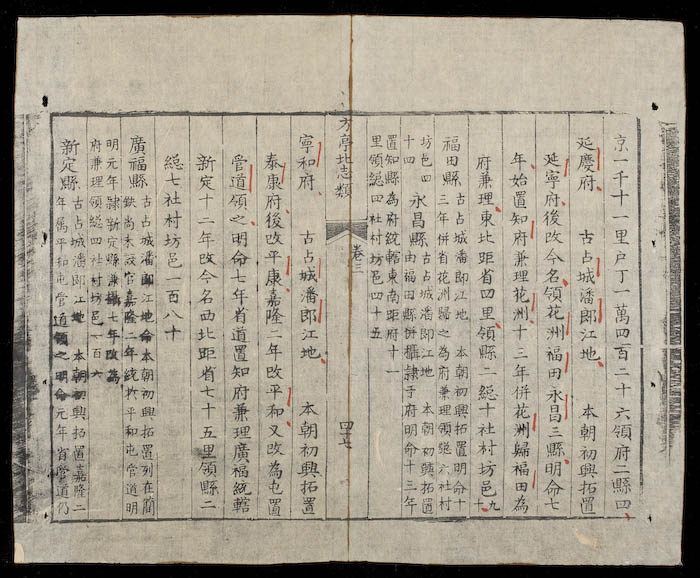 京一千十一里戶丁一萬四百二十六領府二縣四
延慶府　古占城潘郎江地　本朝初興拓置
延寧府後改今名領花洲福田永昌三縣明命七
年始置知府兼理花洲十三年併花洲歸福田為
府兼理東北距省四里領縣二總十社村坊邑九十
福田縣　古占城潘郎江地　本朝初興拓置明命十
三年併省花洲歸之為府兼理領總六社村
坊邑四十四　永昌縣　古占城潘郎江地　本朝初興拓置
由福田縣併攝隷于府明命十三年
置知縣為府統轄東南距府十一
里領總四社村坊邑四十五
方亭地志類　卷三　四七
寧和府　古占城潘郎江地　本朝初興拓置
泰康府後改平康嘉隆二年改平和又改為屯置
管道領之明命七年省道置知府兼理廣福統轄
新定十二年改今名西北距省七十五里領縣二
總七社村坊邑一百八十
廣福縣　古占城潘郎江地　本朝初興拓置列在簡
鉄尚未設官嘉隆二年統於平和屯管道明
明元年隷新定縣兼攝七年改為
府兼理領總四社村坊邑一百六
新定縣　古占城潘郎江地　本朝初興拓置嘉隆二
年属平和屯管道領之明命元年省管道仍